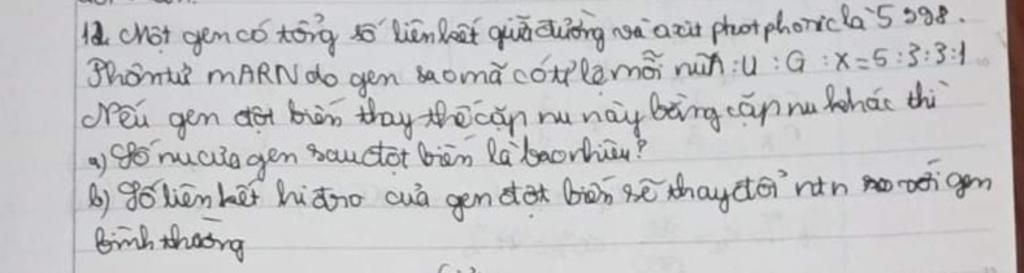 12. Một gen có tổng số liên kết giữa đường và axit photphoric là 5998.
Phân tử mARN do gen sao mã có tỉ lệ mỗi nu A:U:G:X=5:3:3:1
Nếu gen đột biến thay thế cặp nu này bằng cặp nu khác thì
a) Số nu của gen sau đột biến là bao nhiêu?
b) Số liên kết hiđro của gen đột biến sẽ thay đổi ntn so với gen
bình thường